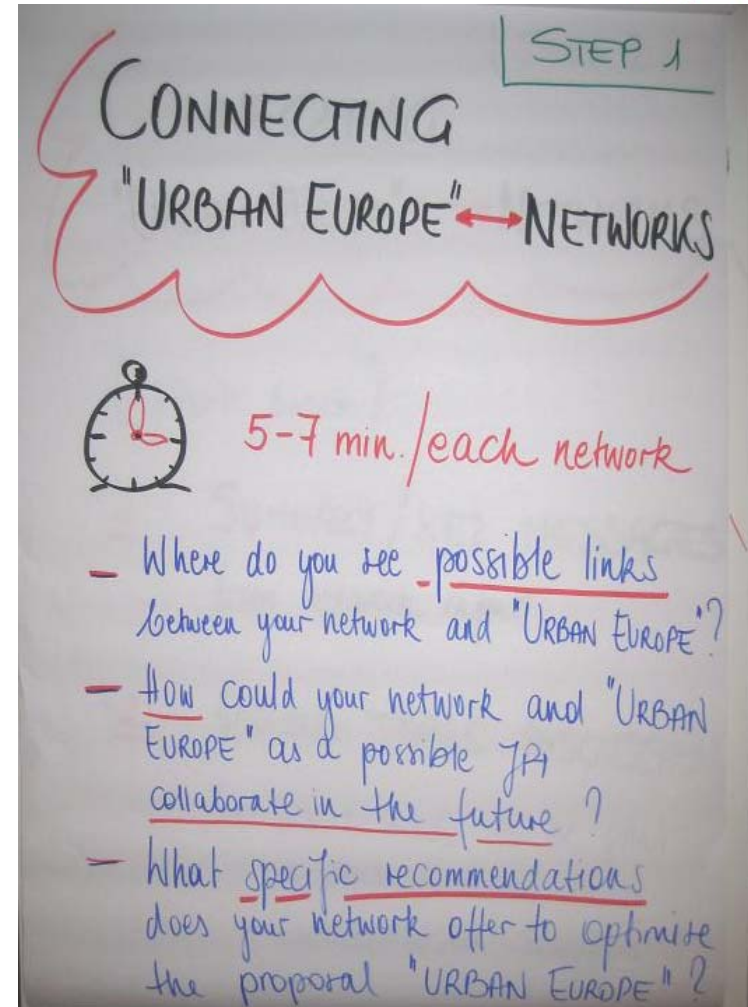 STEP 1
CONNECTING
"URBAN EUROPE" ↔ NETWORKS
5-7 min./each network
- Where do you see possible links
between your network and "URBAN EUROPE"?
- How could your network and "URBAN
EUROPE" as a possible JPI
collaborate in the future?
- What specific recommendations
does your network offer to optimise
the proposal "URBAN EUROPE"?